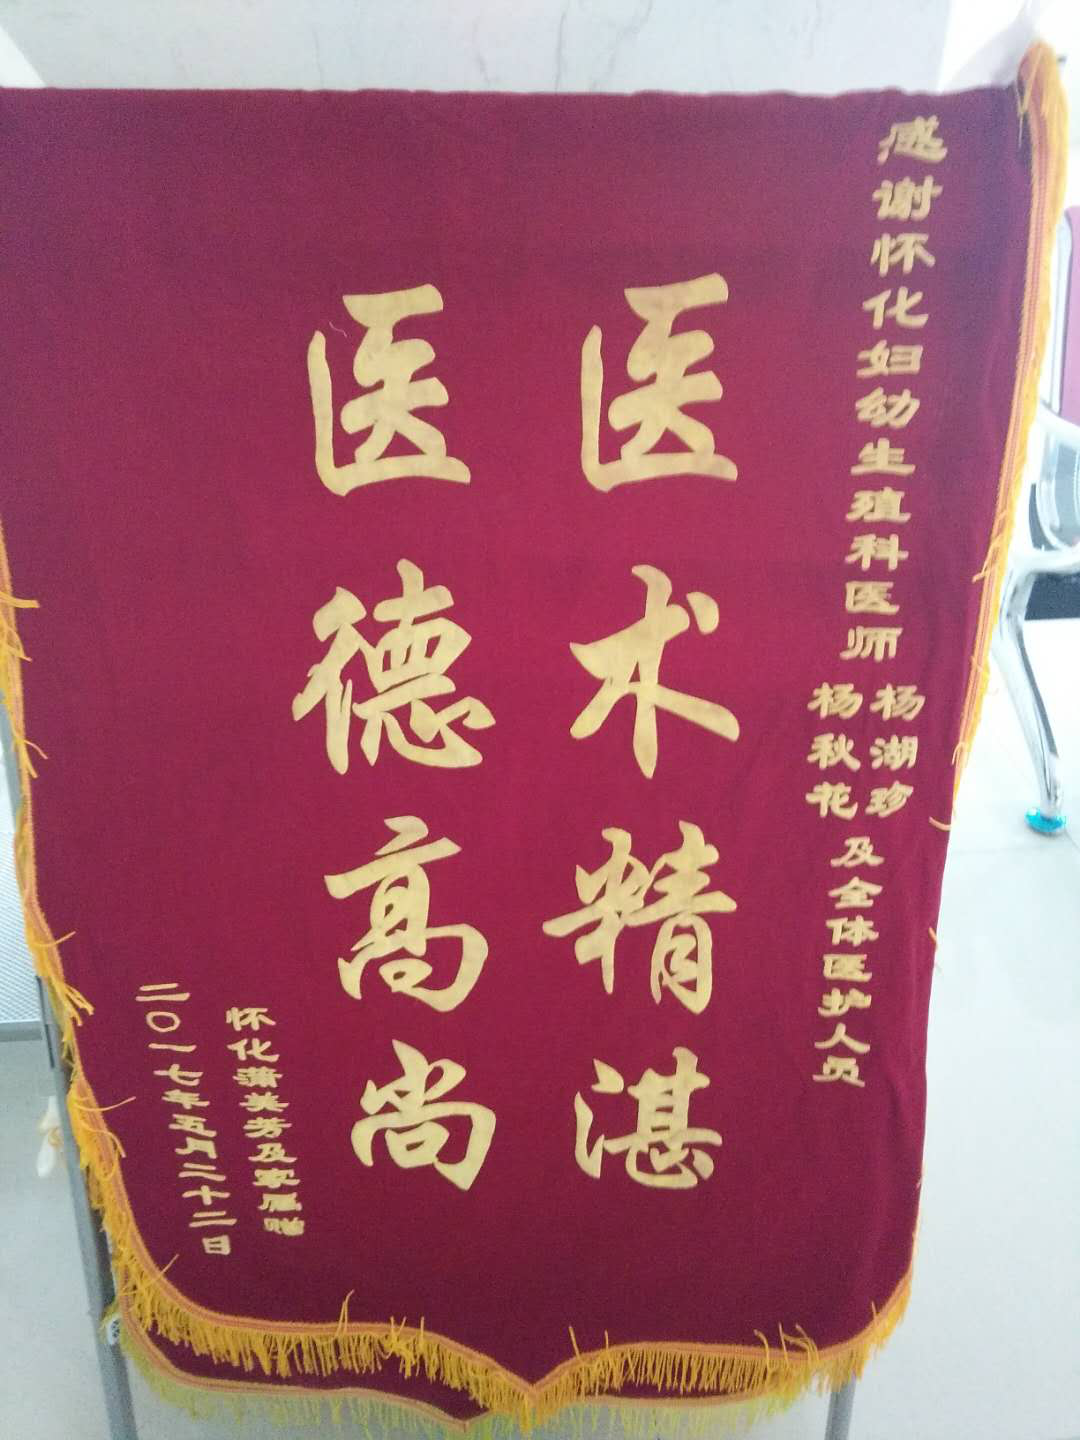 感谢怀化妇幼生殖科医师
杨湖珍
杨秋花
及全体医护人员
医术精湛
医德高尚
怀化蒲美芳及家属赠
二〇一七年五月二十二日